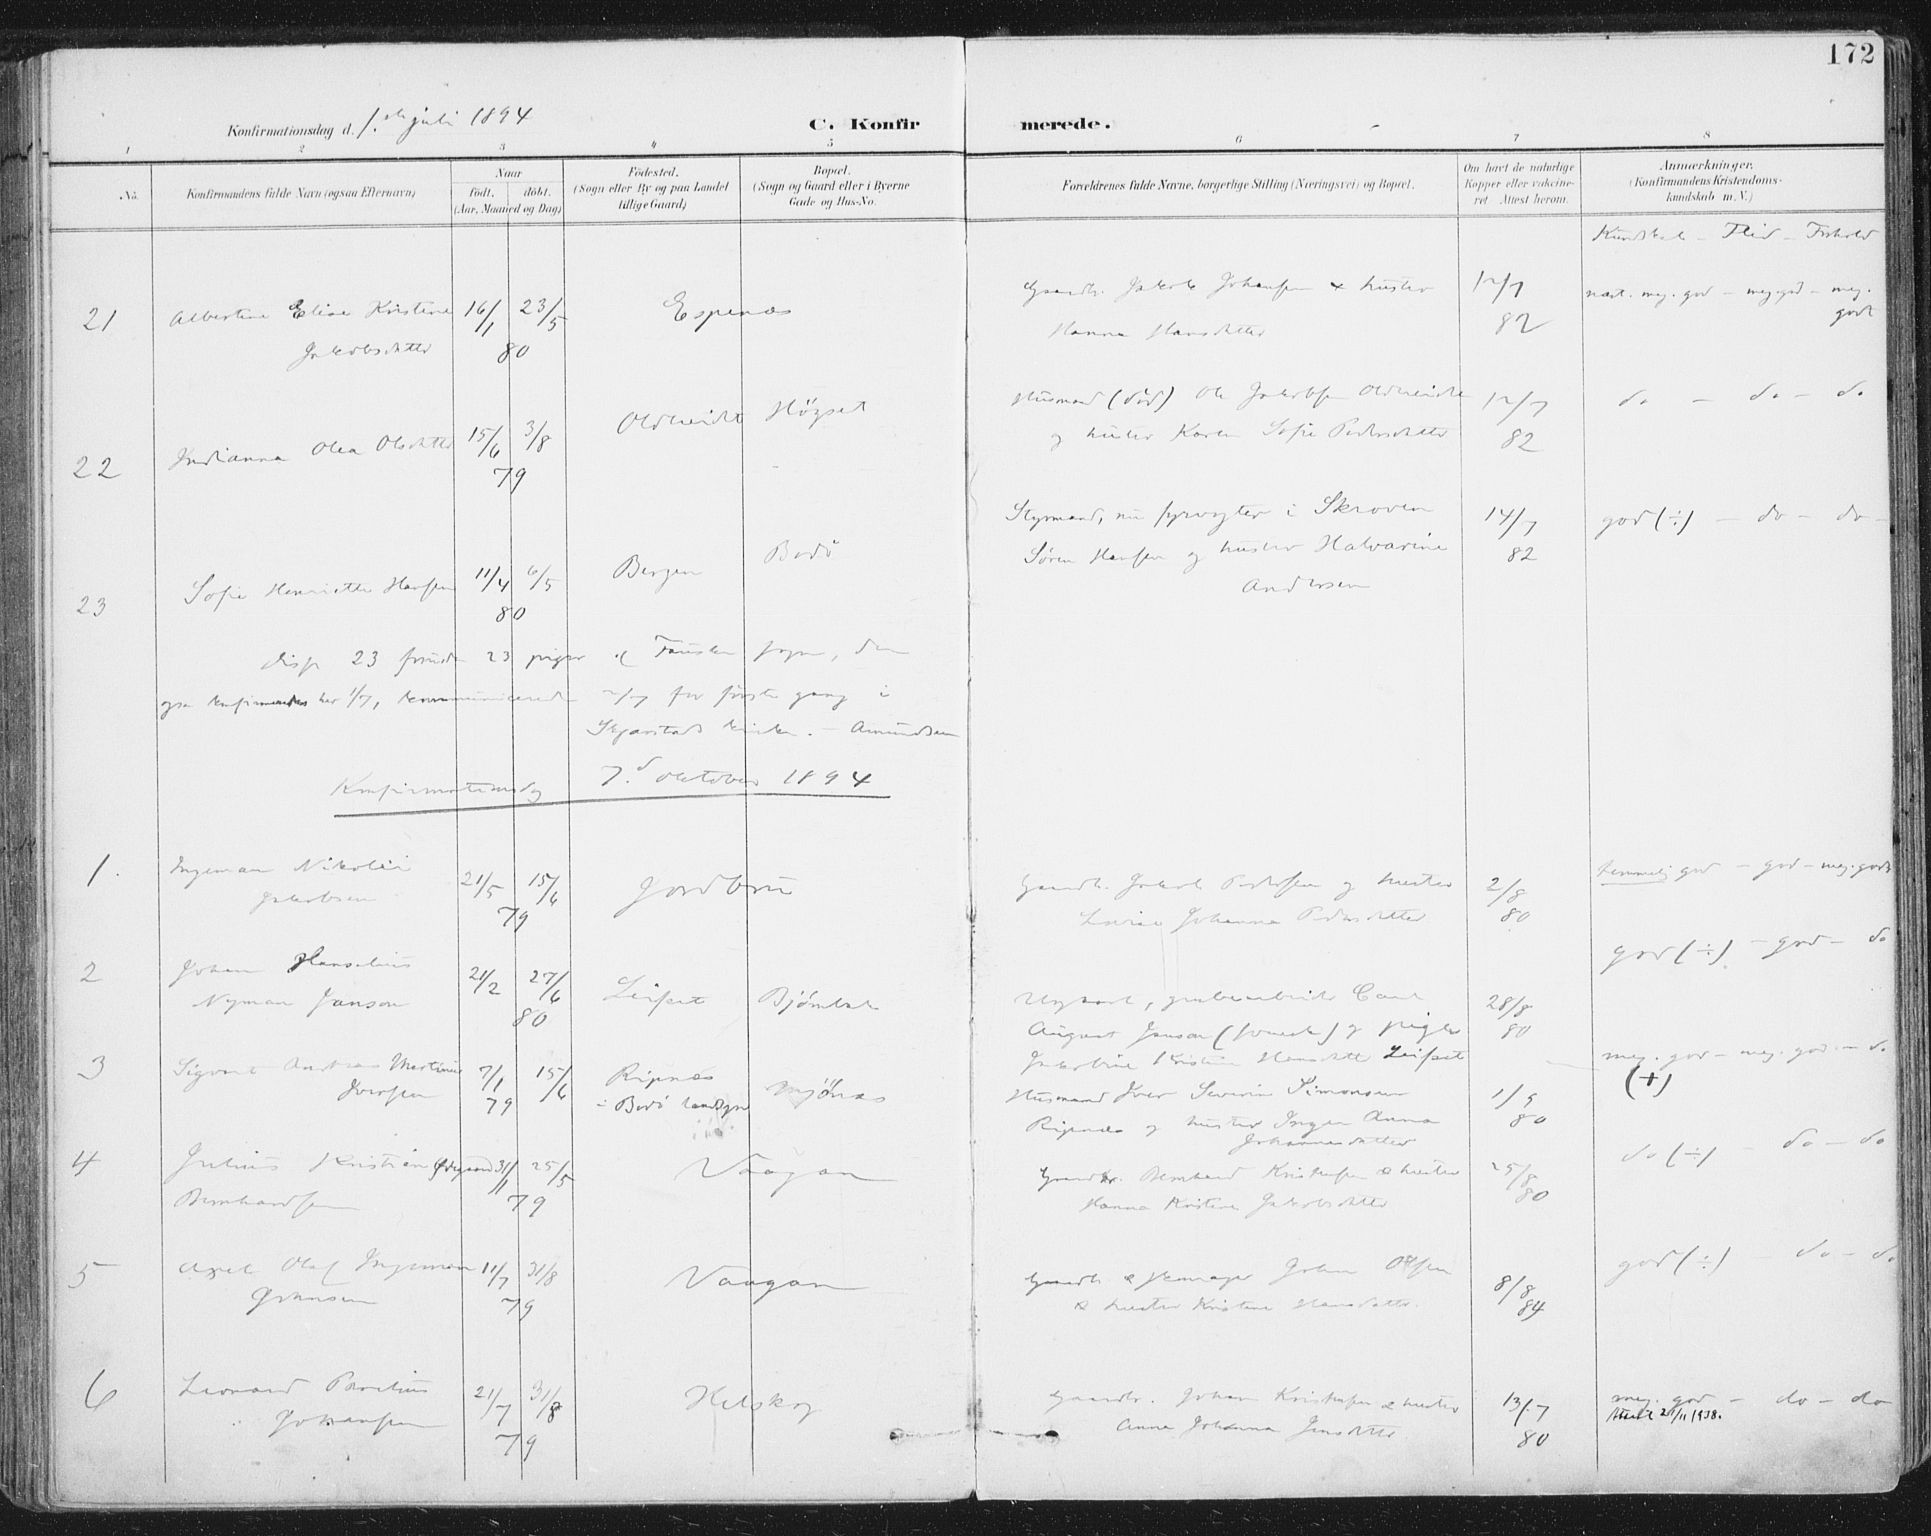 172
Konfirmationsdag d. 1. juli 1894
C. Konfirmerede.
1 2 3 4 5 6 7 8
No.
Konfirmandens fulde Navn (ogsaa Efternavn)
Naar
født. døbt.
(Aar, Maaned og Dag)
Fødested.
(Sogn eller By og paa Landet
tillige Gaard)
Bopæl.
(Sogn og Gaard eller i Byerne
Gade og Hus-No.
Forældrenes fulde Navne, borgerlige Stilling (Næringsvei) og Bopæl.
Om havt de naturlige
Kopper eller vakcine-
ret. Attest herom.
Anmærkninger.
(Konfirmandens Kristendoms-
kundskab m. V.)
Kundskab - Flid - Forhold
21 Albertine Elise Kristine 16/1 23/5 Espenes Gaardb. Jakob Johansen & hustru 12/7 næst. meg. god - meg. god - meg.
Jakobsdatter 80 Hanna Hansdatter 82 godt
22 Indianna Olea Olsdatter 15/6 3/8 Oldereidet Högset Husmand (död) Ole Jakobsen Oldereidet 12/7 do - do - do
79 og hustru Karen Sofie Pedersdatter 82
23 Sofie Henriette Hansen 11/4 6/5 Bergen Bodö Styrmand, nu fyrvogter i Skroven 14/7 god (÷) - do - do -
80 Sören Hansen og hustru Halvarine 82
Andersen
disse 23 foruden 23 piger af Fauske sogn, der
ogsaa konfirmeredes her 1/7, kommunicerede 2/7 for første gang i
Skjerstad kirke. - Amundsen
Konfirmationsdag 7.d oktober 1894
1. Ingeman Nikolai 21/5 15/6 Jordbru Gaardb. Jakob Pedersen og hustru 2/8 temmelig god - god - meg. godt
Jakobsen 79 Johanna Pedersdatter 80
2 Johan Hanselius 21/2 27/6 Leifset Ugift, grubearbeider Carl 28/8 god (÷) - god - do
Nyman Janson 80 August Janson (svensk) og pige 80
Jakobine Kristine Hansdatter Leifset
3 Sigvart Andreas Martinus 7/1 15/6 Ripnes Mjönes Husmand Iver Severin Simonsen 1/9 meg. god - meg. god - do
Iversen 79 i Bodö landsogn Ripnes og hustru Inger Anna 80 (+)
Johannesdatter
4 Julius Kristian 31/1 25/5 Vaagan Gaardbr. Bernhard Kristensen & hustru 25/8 do (÷) - do - do
Bernhardsen 79 Hanna Kristine Jakobsdatter 80
5 Axel Olaf Ingeman 11/7 31/8 Vaagan Gaardb. & Johan Olsen 8/8 god (÷) - do - do
Johansen 79 & hustru Kristine Hansdatter 84
6 Leonard Johansen 21/7 31/8 Helskog Gaardbr. Johan Kristensen & hustru 13/7 meg. god - do - do
79 Anna Johanna Jensdatter 80 Attest 21/11 1938.